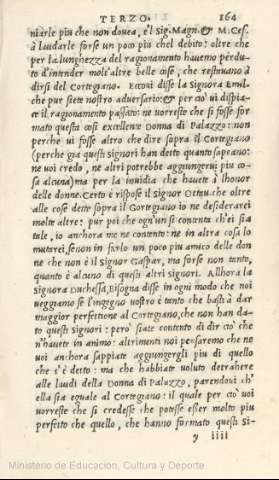 TERZO. 164
niarle piu che non douea, e'l Sig. Magn. & M. Ces.
à laudarle forse un poco piu chel debito: oltre che
per la lunghezza del ragionamento hauemo perdu-
to d'intender molt'altre belle cose, che restauano à
dirsi del Cortegiano. Eccoui disse la Signora Emil.
che pur siete nostro aduersario: & per ciò ui dispia-
ce il ragionamento passato: ne uorreste che si fosse for
mato questa così eccellente Donna di Palazzo: non
perche ui fosse altro che dire sopra il Cortegiano
(perche gia questi Signori han detto quanto sapeano:
ne uoi credo, ne altri potrebbe aggiungerui piu co-
sa alcuna) ma per la inuidia che hauete à lhonor
delle donne. Certo è rispose il Signor Ottau. che oltre
alle cose dette sopra il Cortegiano io ne desidererei
molte altre: pur poi che ogn'un si contenta ch'ei sia
tale, io anchora me ne contento: ne in altra cosa lo
mutarei, se non in farlo un poco piu amico delle don
ne che non è il Signor Gaspar, ma forse non tanto,
quanto è alcuno di questi altri signori. Allhora la
Signora Duchessa, Bisogna disse in ogni modo che noi
ueggiamo se l'ingegno uostro è tanto che basti à dar
maggior perfettione al Cortegiano, che non han da-
to questi signori: però siate contento di dir ciò che
n'hauete in animo: altrimenti noi pensaremo che ne
uoi anchora sappiate aggiungergli piu di quello
che s'è detto: ma che habbiate uoluto detrahere
alle laudi della Donna di Palazzo, parendoui ch'
ella sia eguale al Cortegiano: il quale per ciò uoi
uorreste che si credesse che potesse esser molto piu
perfetto che quello, che hanno formato questi Si-
y iiii
Ministerio de Educación, Cultura y Deporte